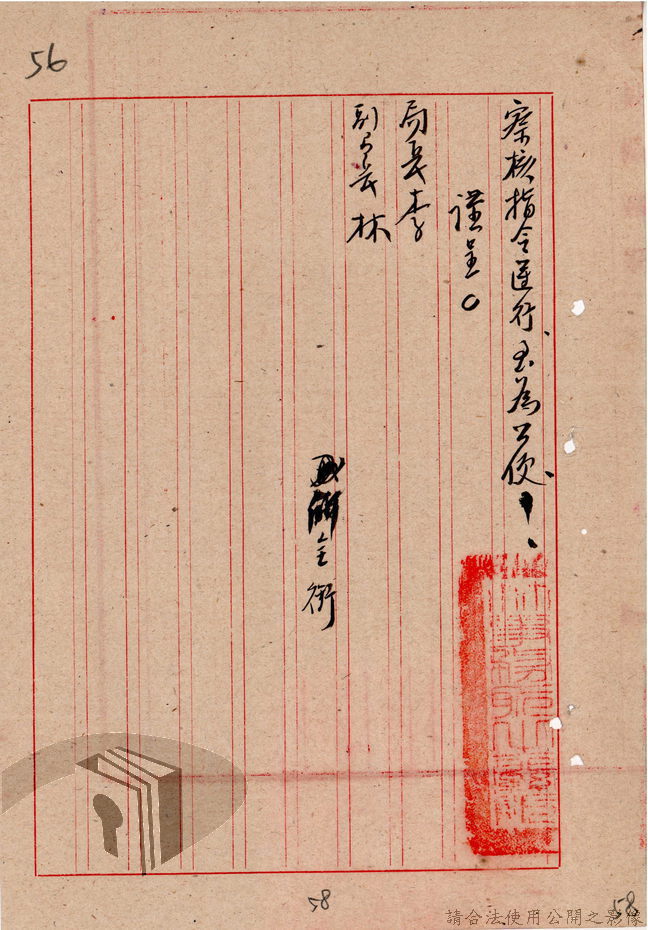 56
察核指令遵行、至為公便！、
謹呈。
局長李
副局長林
全銜
58
58
請合法使用公開之影像